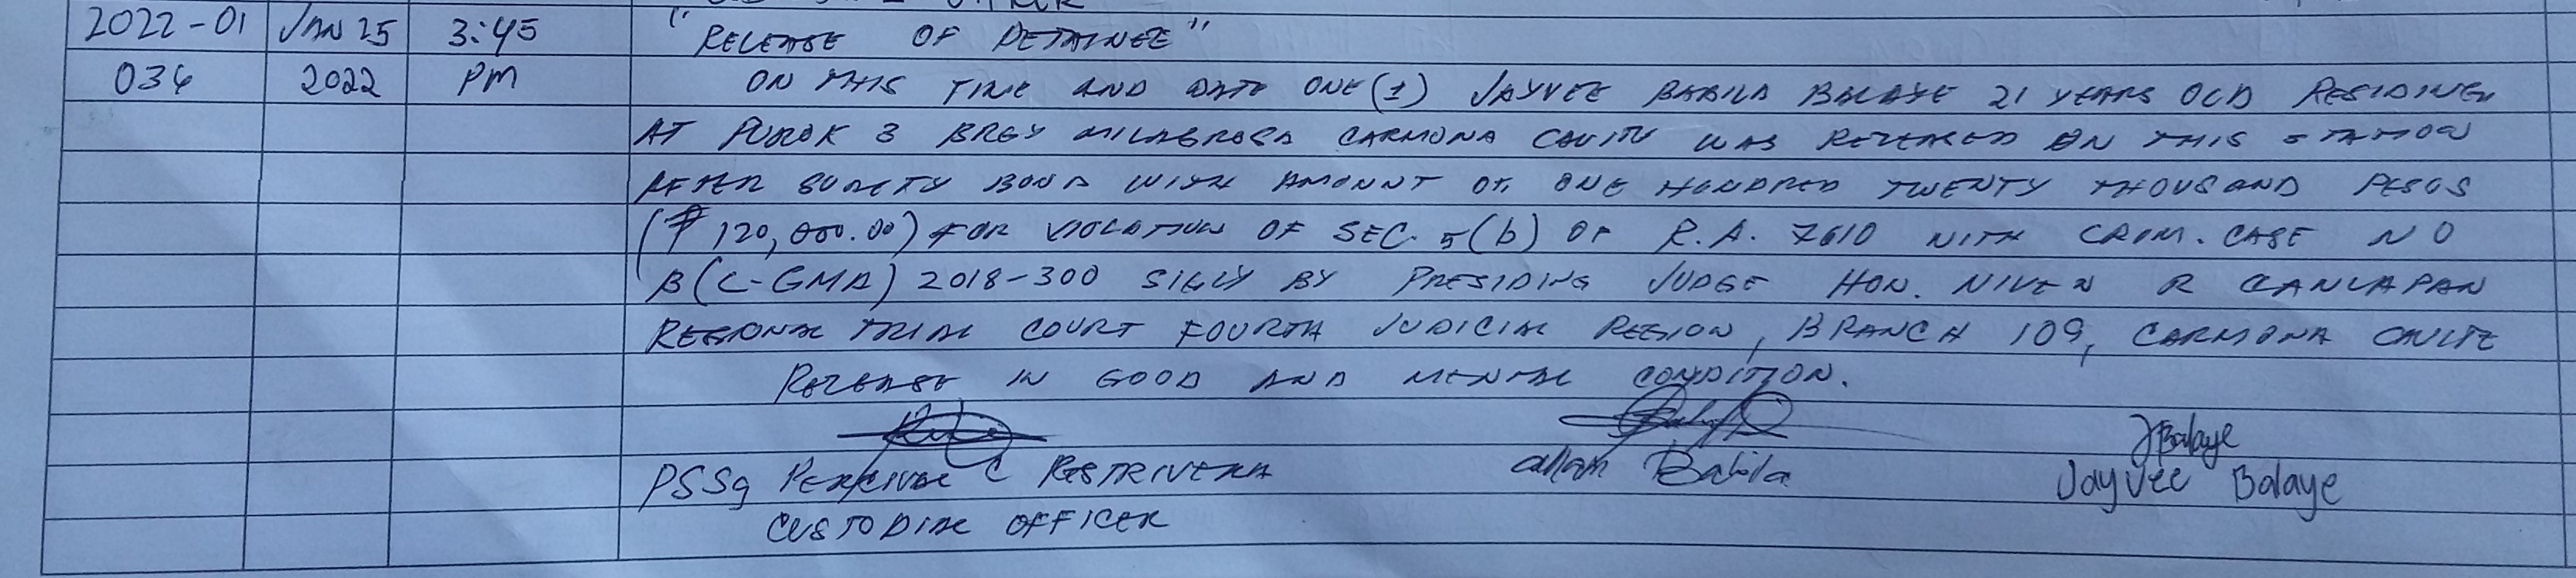 2022-01 JAN 25 3:45 "RELEASE OF DETAINEE"
034 2022 PM ON THIS TIME AND DATE ONE (1) JAYVEE BABILA BALAYE 21 YEARS OLD RESIDING
AT PUROK 3 BRGY MILAGROSA CARMONA CAVITE WAS RELEASED ON THIS STATION
AFTER SURETY BOND WITH AMOUNT OF ONE HUNDRED TWENTY THOUSAND PESOS
(₱ 120,000.00) FOR VIOLATION OF SEC. 5(b) OF R.A. 7610 WITH CRIM. CASE NO
B(C-GMA) 2018-300 BY PRESIDING JUDGE HON. NIVEN R CANLAPAN
REGIONAL TRIAL COURT FOURTH JUDICIAL REGION, BRANCH 109, CARMONA CAVITE
RELEASE IN GOOD AND MENTAL CONDITION.
JBalaye
PSSg PERCIVAL C RESTRIVERA allan Babila Jayvee Balaye
CUSTODIAL OFFICER